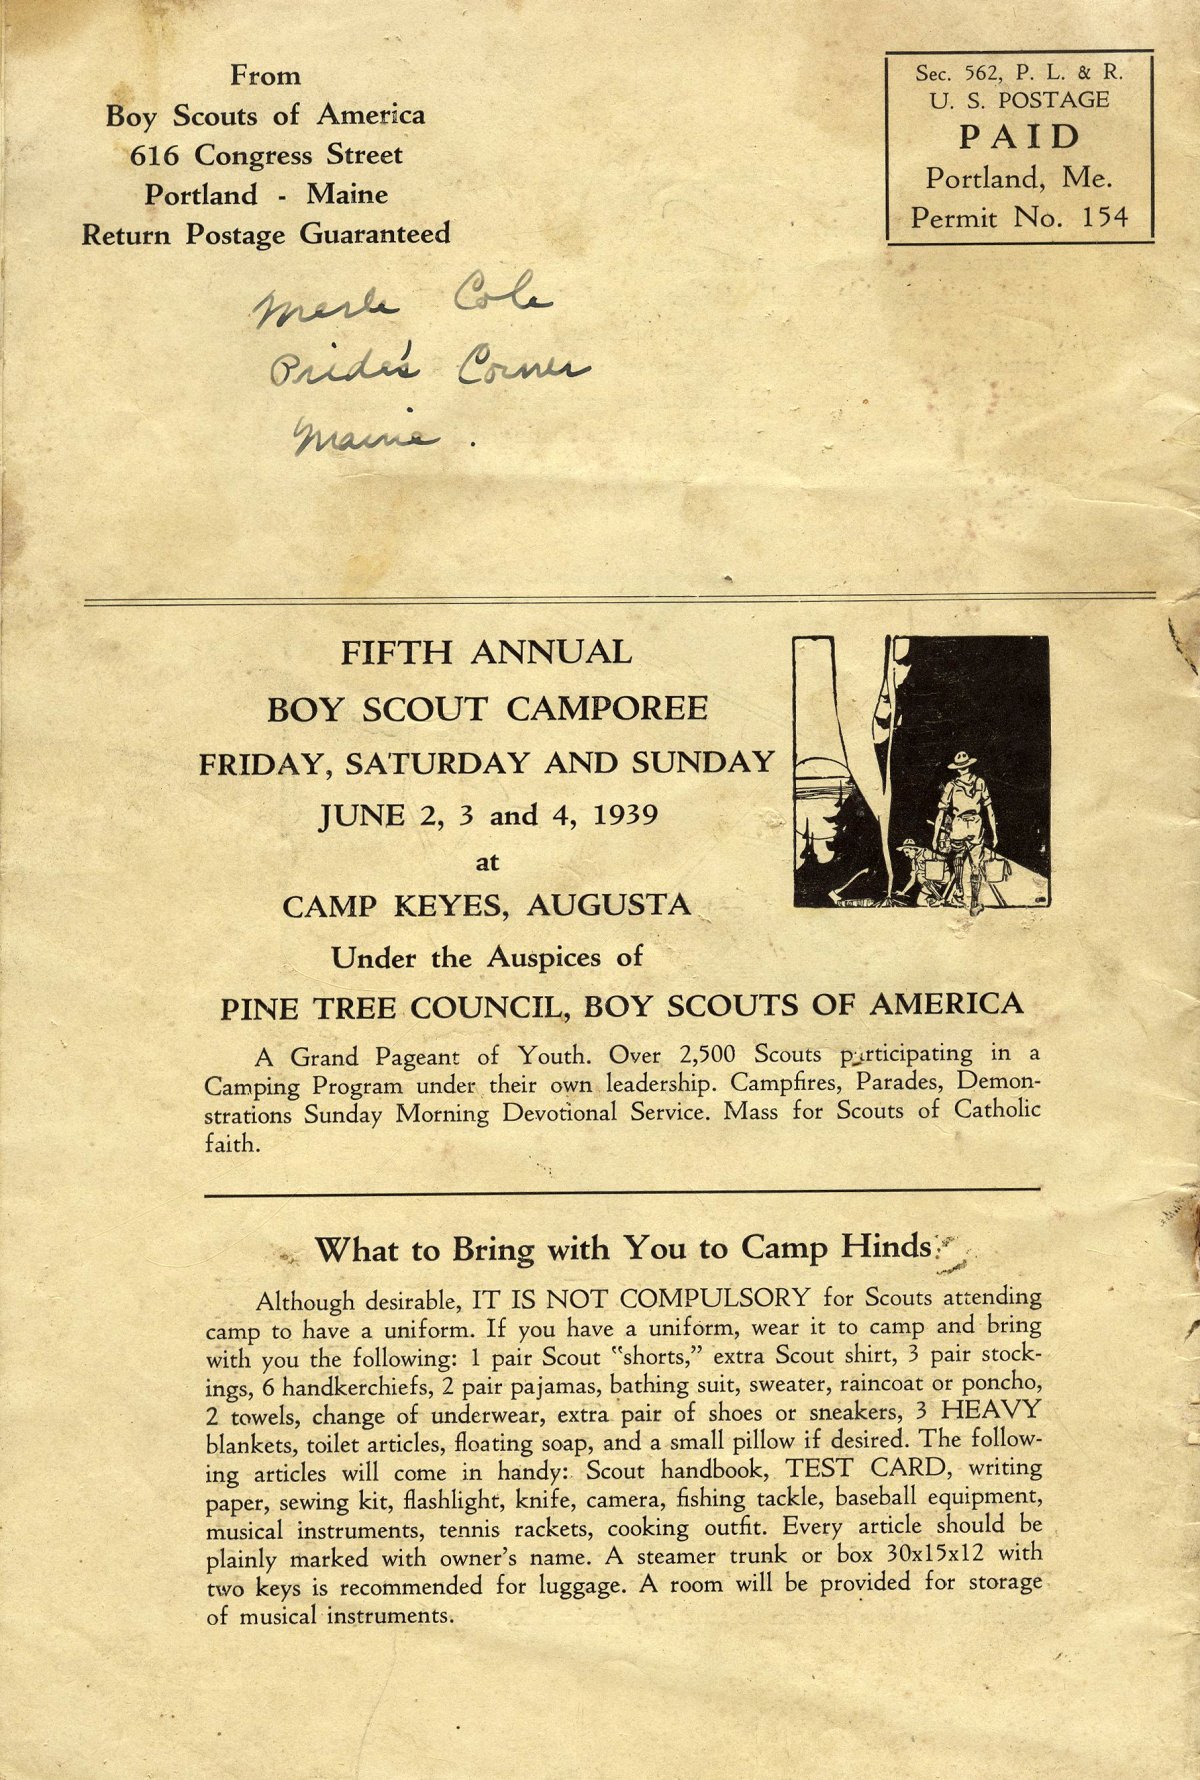 From
Boy Scouts of America
616 Congress Street
Portland - Maine
Return Postage Guaranteed
Sec. 562, P. L. & R.
U. S. POSTAGE
PAID
Portland, Me.
Permit No. 154
Merle Cole
Pride's Corner
Maine.
FIFTH ANNUAL
BOY SCOUT CAMPOREE
FRIDAY, SATURDAY AND SUNDAY
JUNE 2, 3 and 4, 1939
at
CAMP KEYES, AUGUSTA
Under the Auspices of
PINE TREE COUNCIL, BOY SCOUTS OF AMERICA
A Grand Pageant of Youth. Over 2,500 Scouts participating in a
Camping Program under their own leadership. Campfires, Parades, Demon-
strations Sunday Morning Devotional Service. Mass for Scouts of Catholic
faith.
What to Bring with You to Camp Hinds
Although desirable, IT IS NOT COMPULSORY for Scouts attending
camp to have a uniform. If you have a uniform, wear it to camp and bring
with you the following: 1 pair Scout "shorts," extra Scout shirt, 3 pair stock-
ings, 6 handkerchiefs, 2 pair pajamas, bathing suit, sweater, raincoat or poncho,
2 towels, change of underwear, extra pair of shoes or sneakers, 3 HEAVY
blankets, toilet articles, floating soap, and a small pillow if desired. The follow-
ing articles will come in handy: Scout handbook, TEST CARD, writing
paper, sewing kit, flashlight, knife, camera, fishing tackle, baseball equipment,
musical instruments, tennis rackets, cooking outfit. Every article should be
plainly marked with owner's name. A steamer trunk or box 30x15x12 with
two keys is recommended for luggage. A room will be provided for storage
of musical instruments.